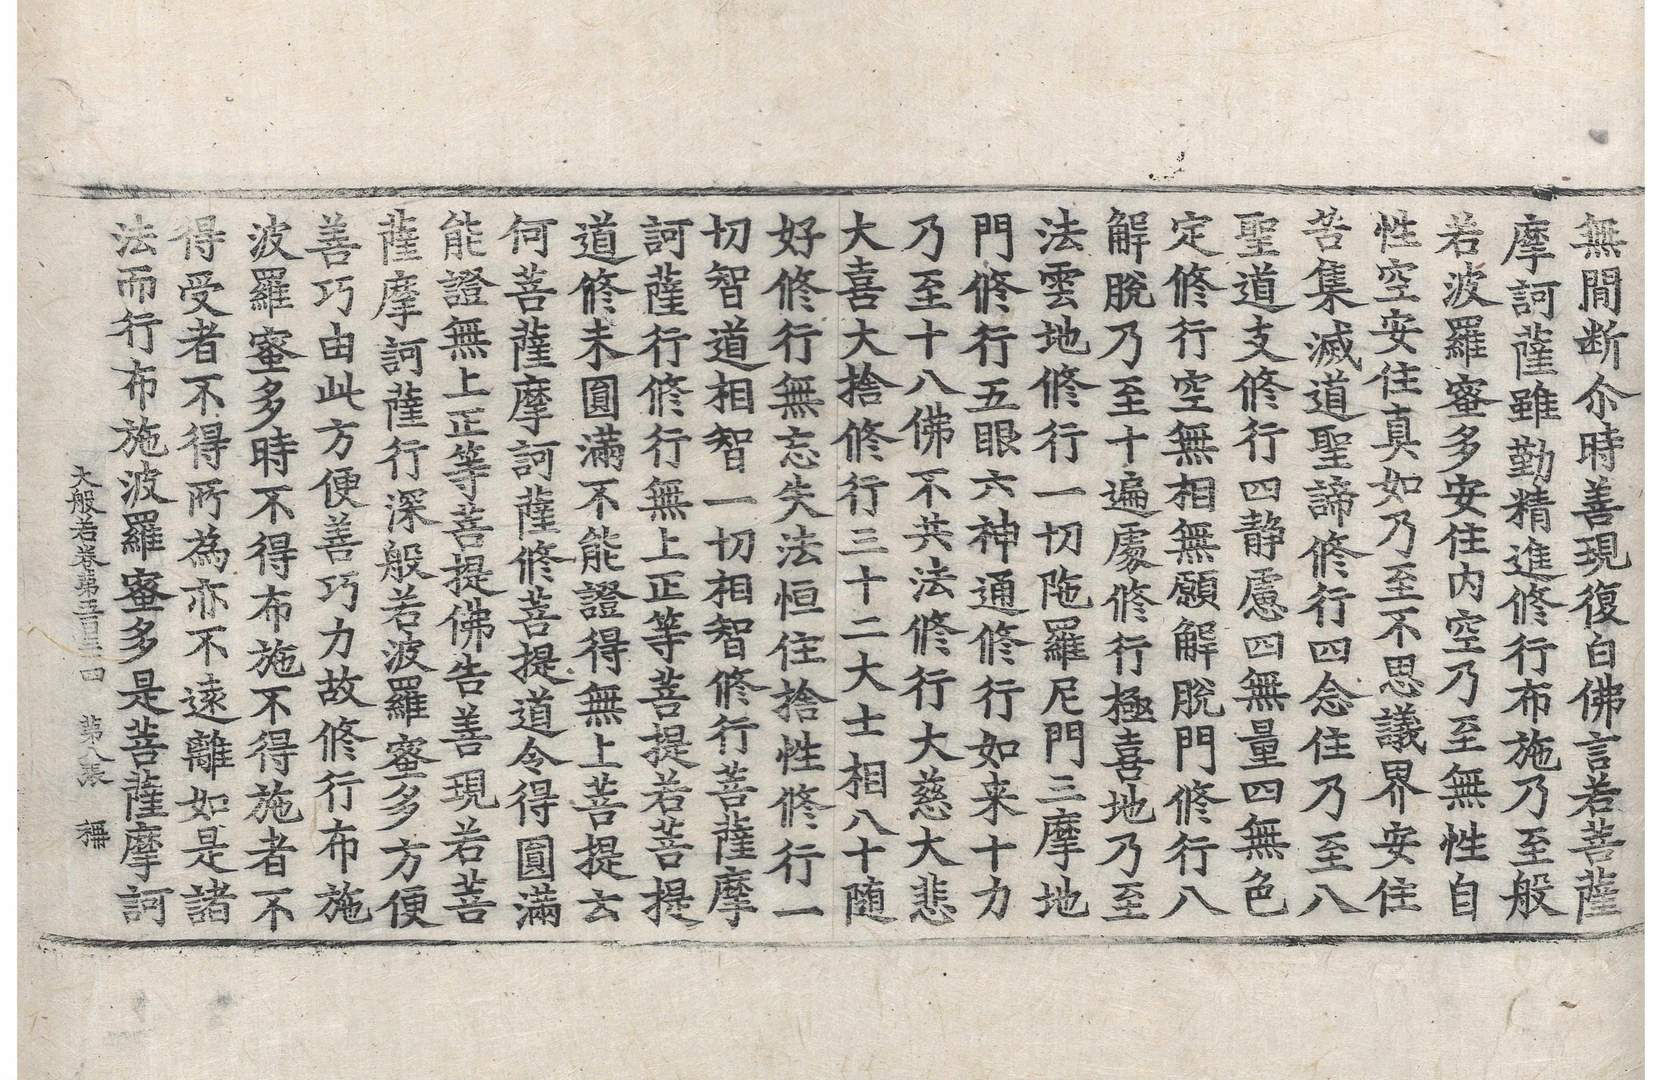 無閒断尒時善現復白佛言若菩薩
摩訶薩雖勤精進修行布施乃至般
若波羅蜜多安住内空乃至無性自
性空安住真如乃至不思議界安住
苦集滅道聖諦修行四念住乃至八
聖道支修行四静慮四無量四無色
定修行空無相無願解脫門修行八
解脫乃至十遍處修行極喜地乃至
法雲地修行一切陁羅尼門三摩地
門修行五眼六神通修行如来十力
乃至十八佛不共法修行大慈大悲
大喜大捨修行三十二大士相八十随
好修行無忘失法恒住捨性修行一
切智道相智一切相智修行菩薩摩
訶薩行修行無上正等菩提若菩提
道修未圓滿不能證得無上菩提去
何菩薩摩訶薩修菩提道令得圓滿
能證無上正等菩提佛告善現若菩
薩摩訶薩行深般若波羅蜜多方便
善巧由此方便善巧力故修行布施
波羅蜜多時不得布施不得施者不
得受者不得所為亦不遠離如是諸
法而行布施波羅蜜多是菩薩摩訶
大般若卷第五百三四 第八張 稱